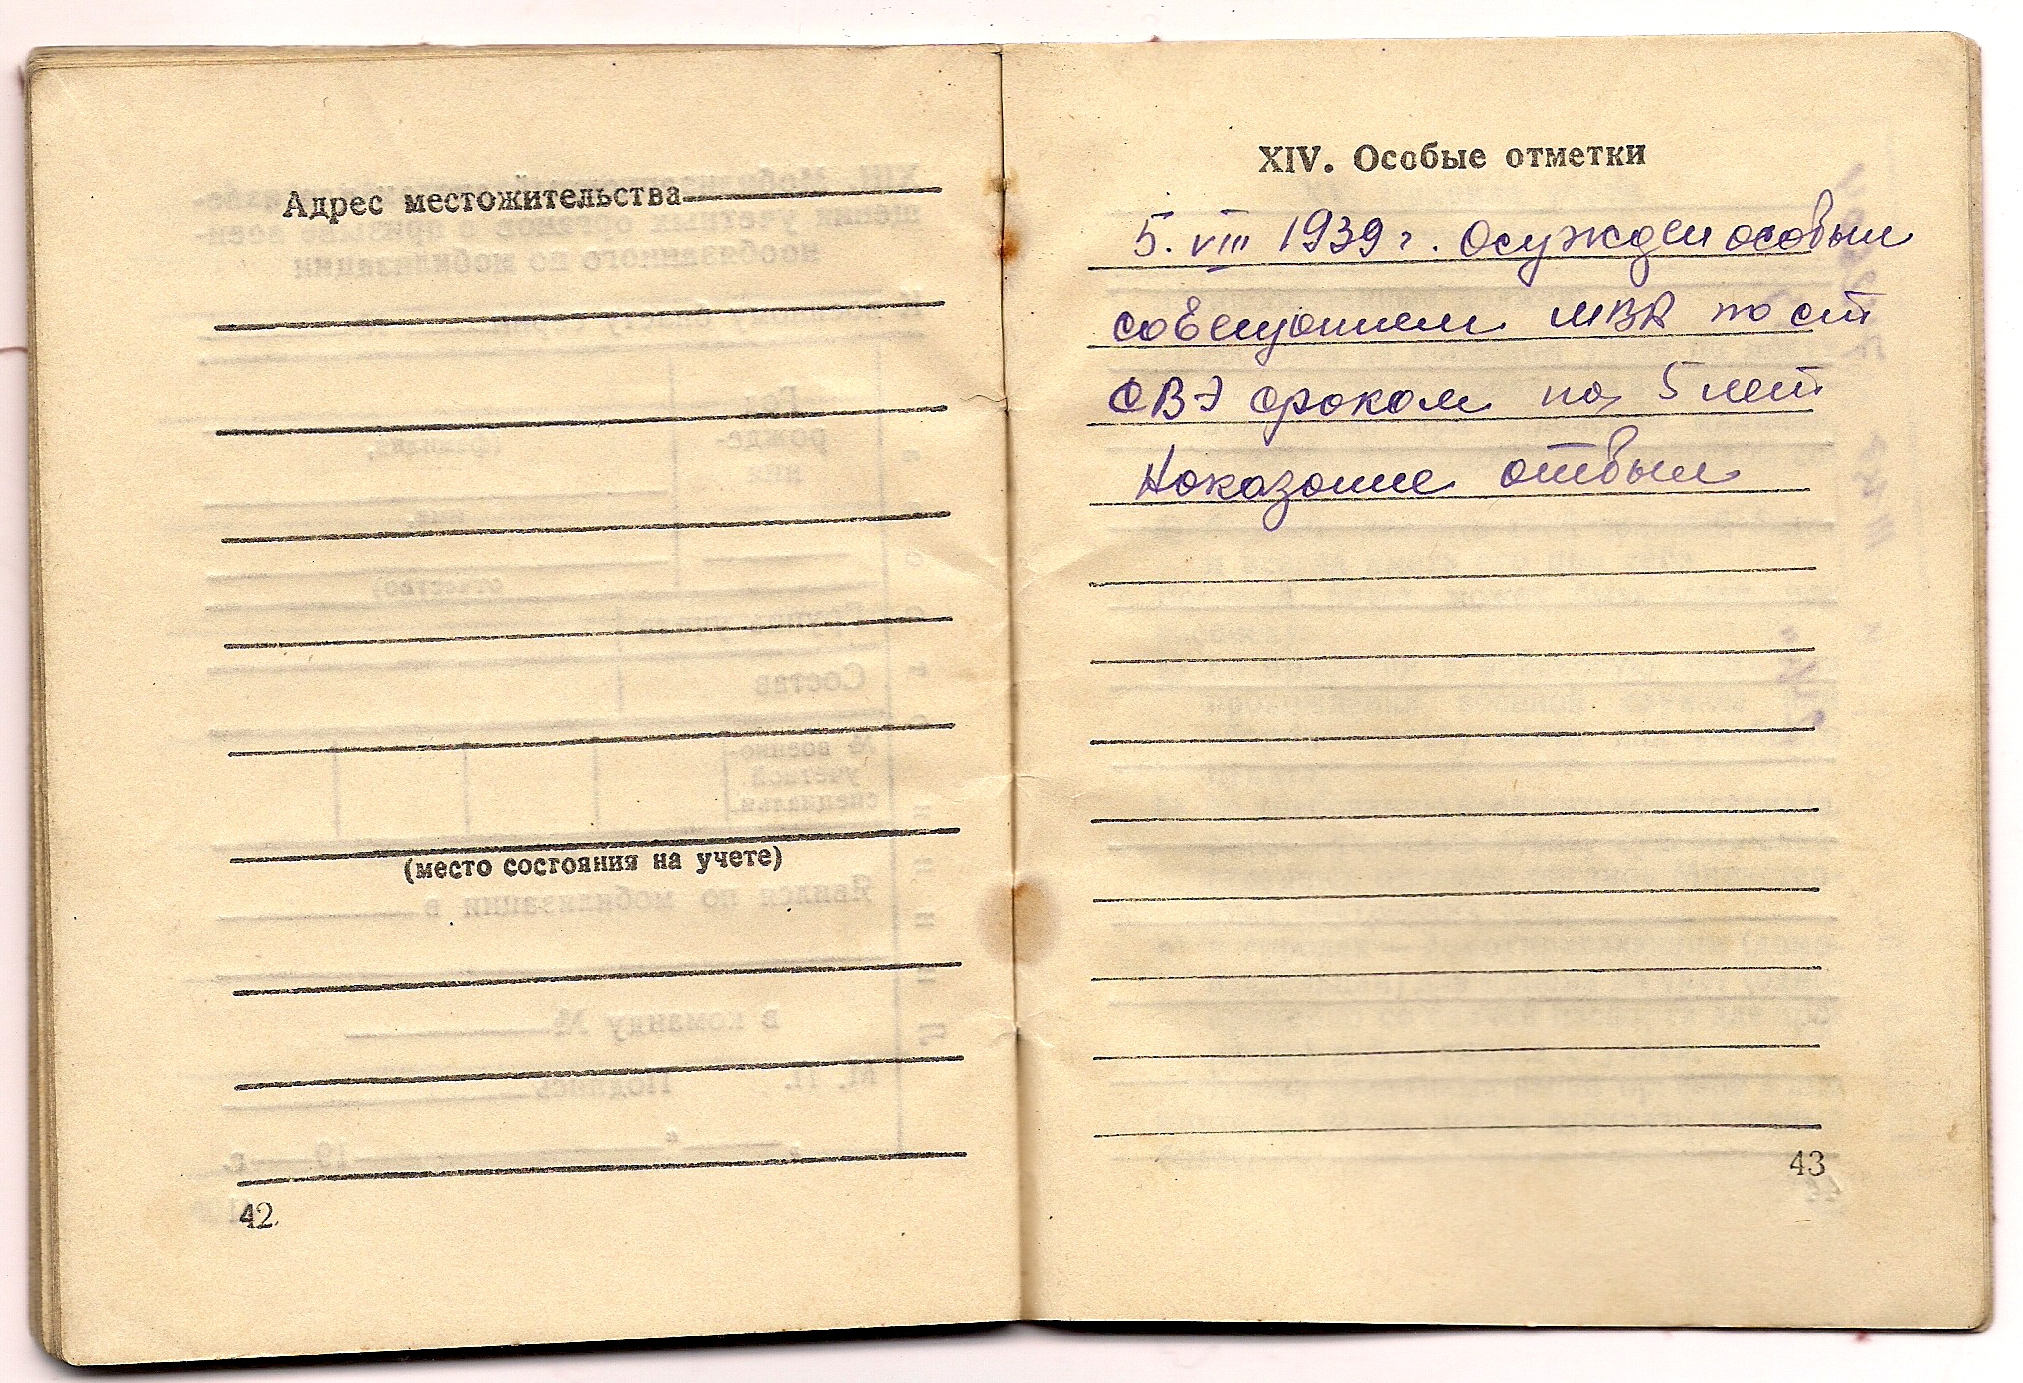 Адрес местожительства
(место состояния на учете)
42
XIV. Особые отметки
5. VIII 1939 г. Осужден особым
совещанием МВД по ст
СВЭ сроком на 5 лет
Наказание отбыл
43